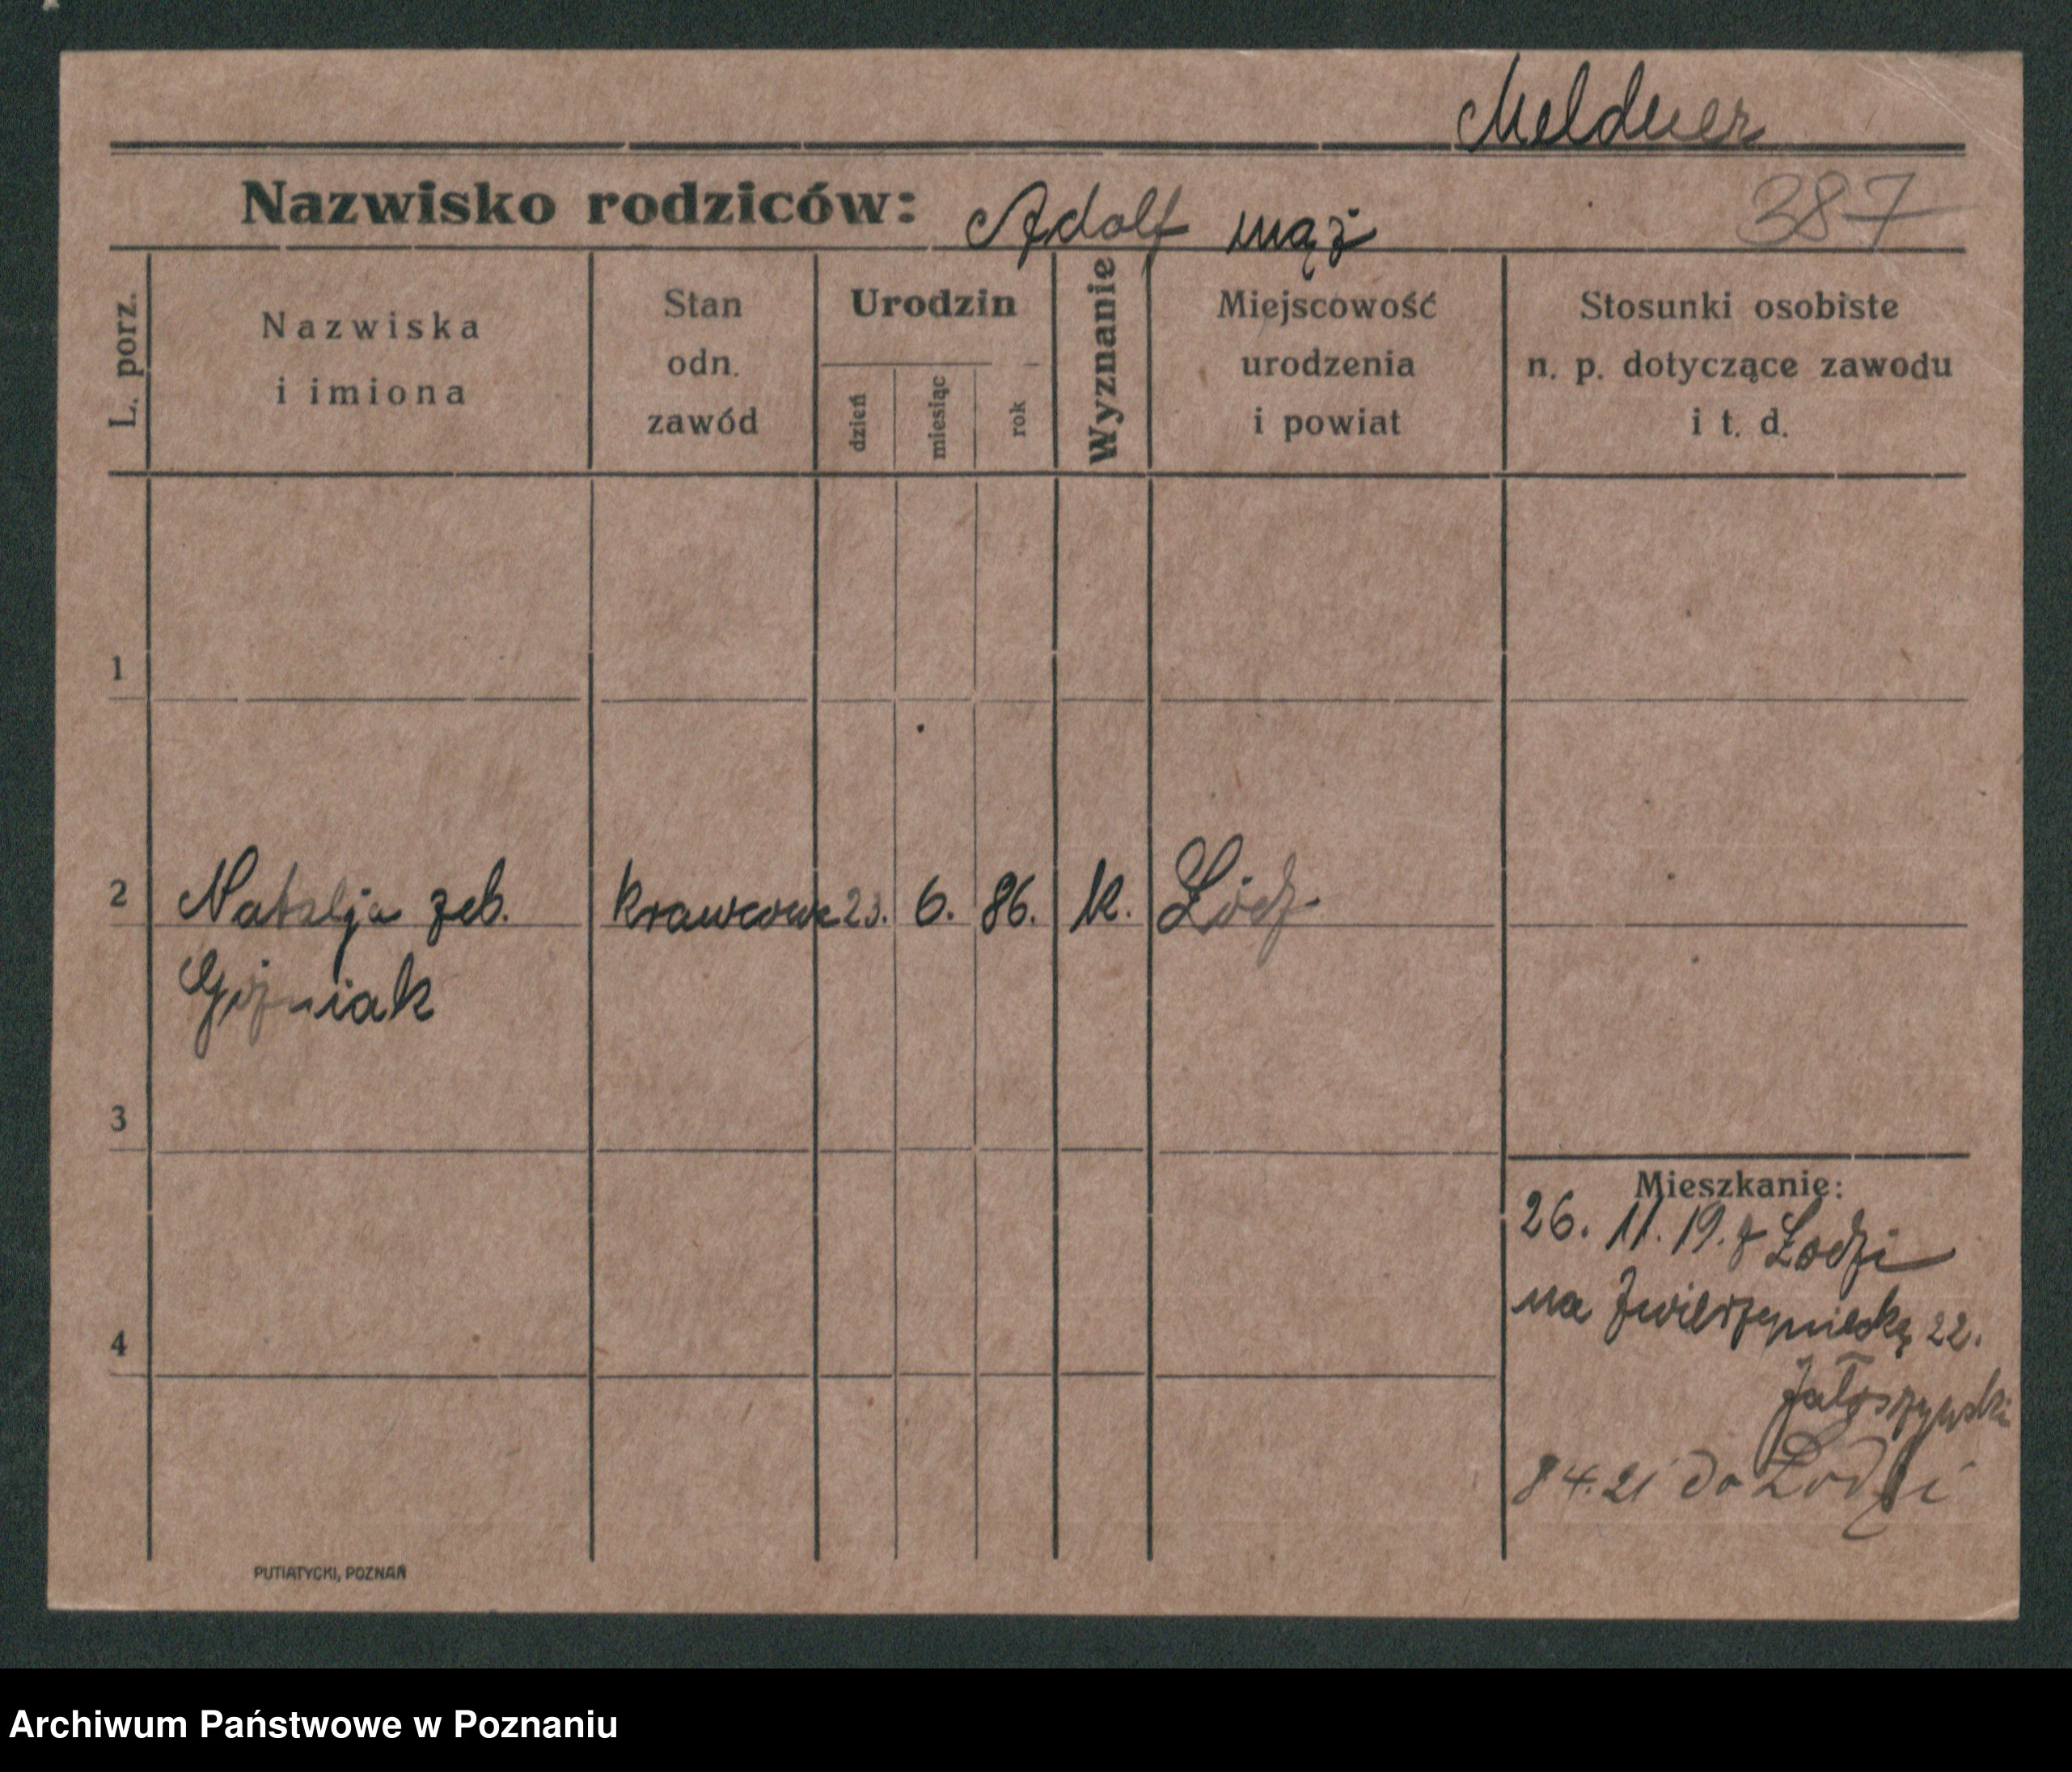 Meldner
Nazwisko rodziców: Adolf mąż
387
L. porz.
Nazwiska
i imiona
Stan
odn.
zawód
Urodzin
dzień
miesiąc
rok
Wyznanie
Miejscowość
urodzenia
i powiat
Stosunki osobiste
n. p. dotyczące zawodu
i t. d.
1
2 Natalja zeb. krawcowa 23. 6. 86. k. Łódź
Goźniak
3
4
Mieszkanie:
26. 11. 19. z Łodzi
na Zwierzyniecką 22.
Jałoszyński
8 4. 21 do Łodzi
PUTIATYCKI, POZNAŃ
Archiwum Państwowe w Poznaniu